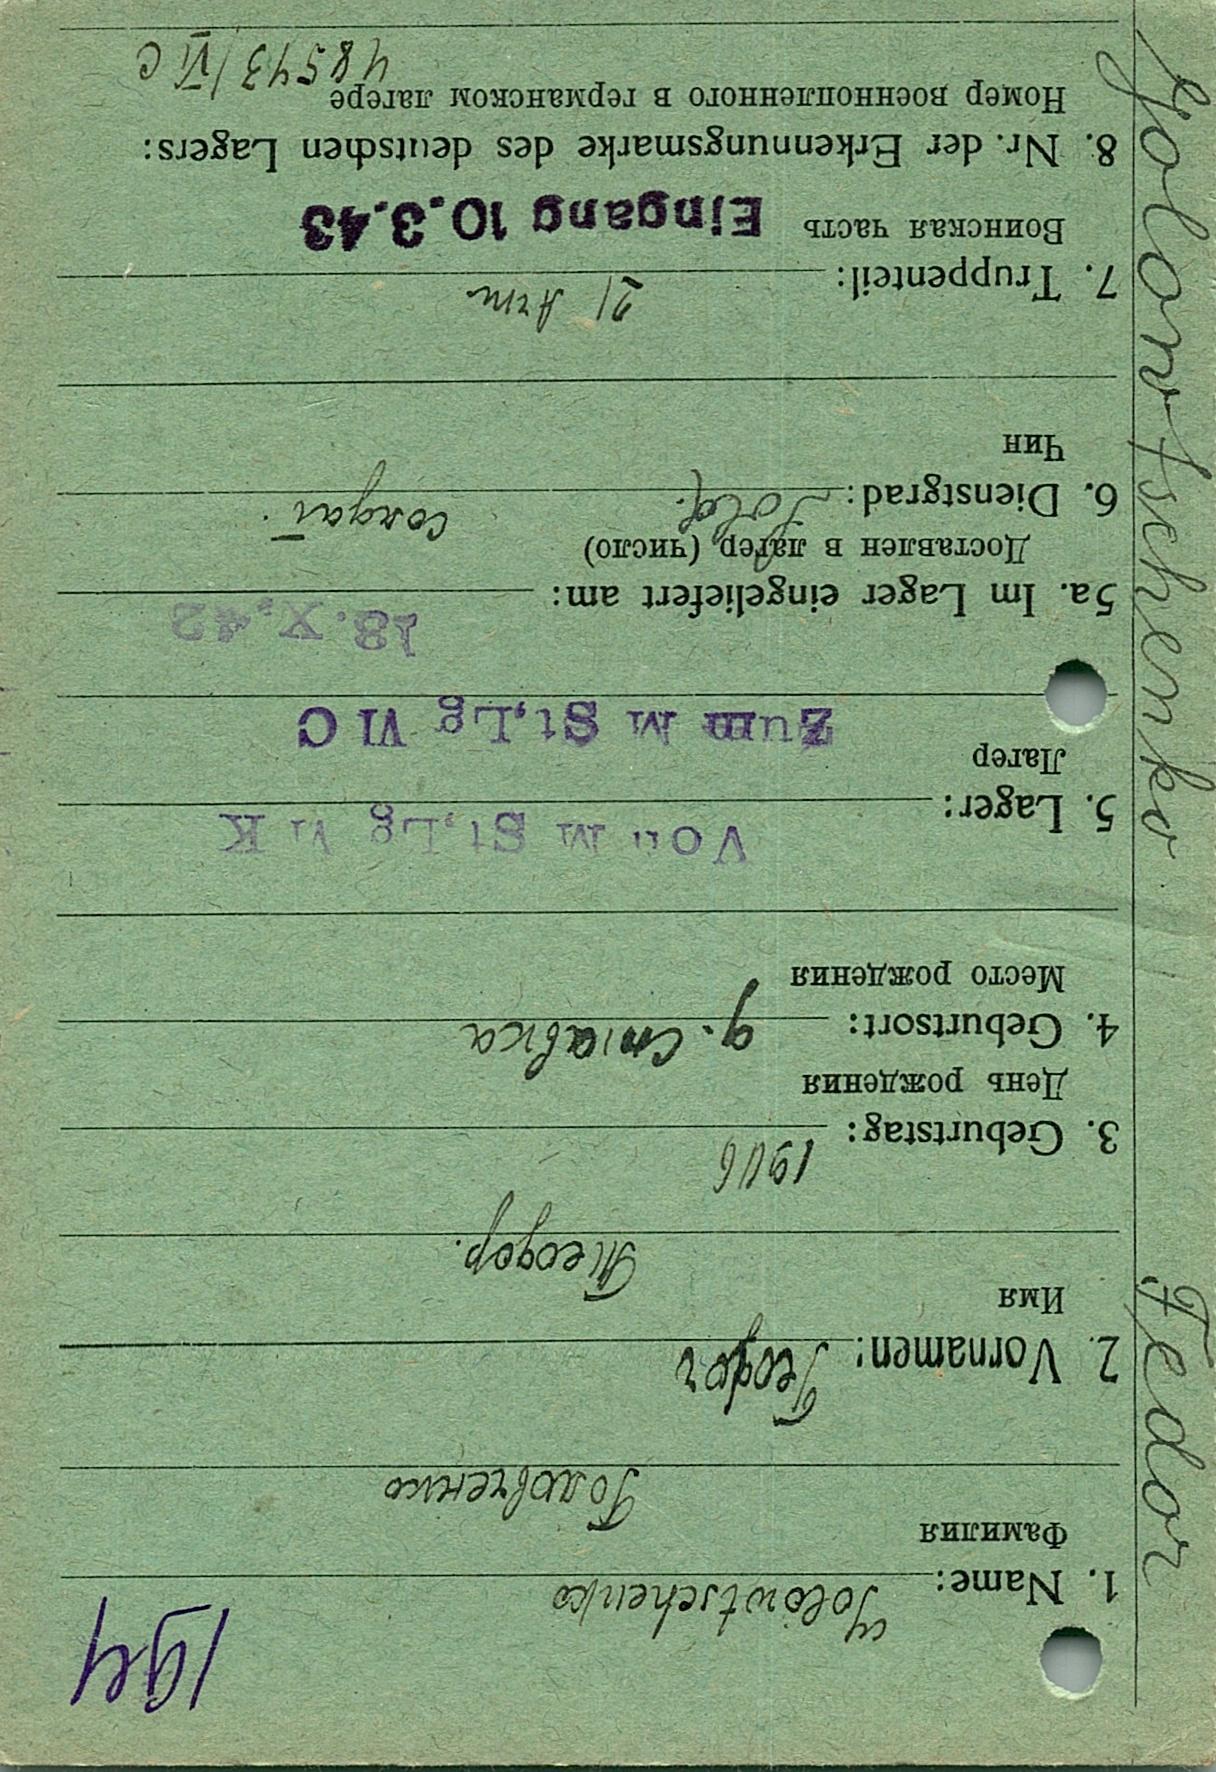 Golowtschenko Fedor
194
1. Name: Golowtschenko
Фамилия
Головченко
2. Vornamen: Feodor
Имя
Теодор.
3. Geburtstag: 1906
День рождения
4. Geburtsort: д. Ставка
Место рождения
5. Lager: Von M St,Lg VI K
Лагер
Zum M St,Lg VI C
5a. Im Lager eingeliefert am: 18. X. 42
Доставлен в лагер (число)
6. Dienstgrad: Sold. солдат.
Чин
7. Truppenteil: 21 Arm
Воинская часть Eingang 10.3.43
8. Nr. der Erkennungsmarke des deutschen Lagers:
Номер военнопленного в германском лагере
48543/VI C